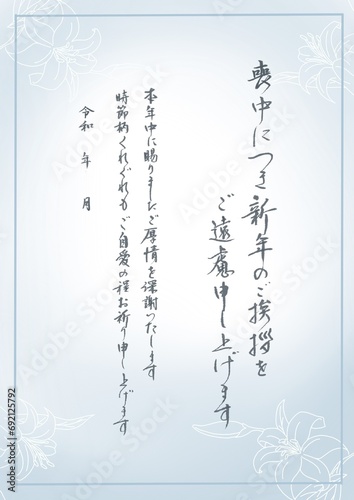 喪中につき新年のご挨拶を
ご遠慮申し上げます
本年中に賜りましたご厚情を深謝いたします
時節柄くれぐれもご自愛の程お祈り申し上げます
令和　年　月
Adobe Stock | #692125792